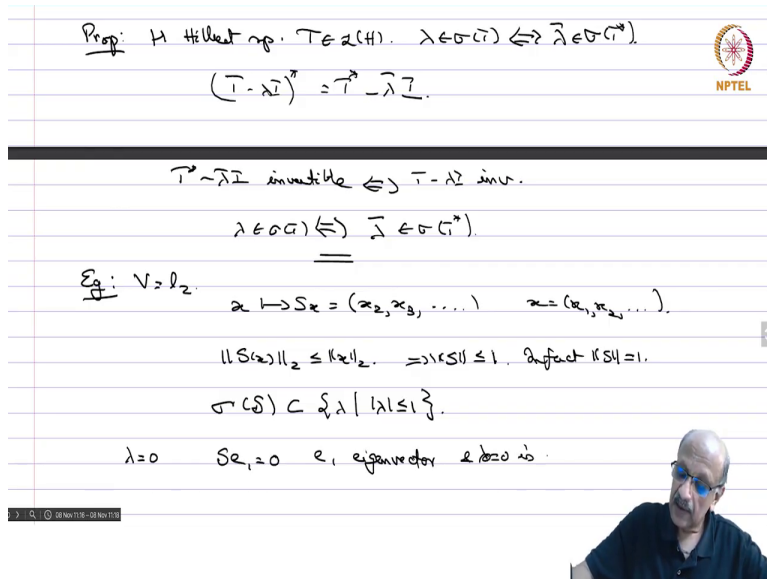 Prop: H Hilbert sp. T ∈ 𝓛(H). λ ∈ σ(T) ⇔ λ̄ ∈ σ(T*).
(T - λI)* = T* - λ̄ I.
NPTEL
T* - λ̄ I invertible ⇔ T - λI inv.
λ ∈ σ(T) ⇔ λ̄ ∈ σ(T*).
Eg: V = l₂.
x ↦ Sx = (x₂, x₃, ....) x = (x₁, x₂, ...).
‖S(x)‖₂ ≤ ‖x‖₂. ⇒ ‖S‖ ≤ 1. Infact ‖S‖ = 1.
σ(S) ⊂ {λ | |λ| ≤ 1}.
λ=0 Se₁ = 0 e₁ eigenvector & λ=0 is
08 Nov 11:16 - 08 Nov 11:18